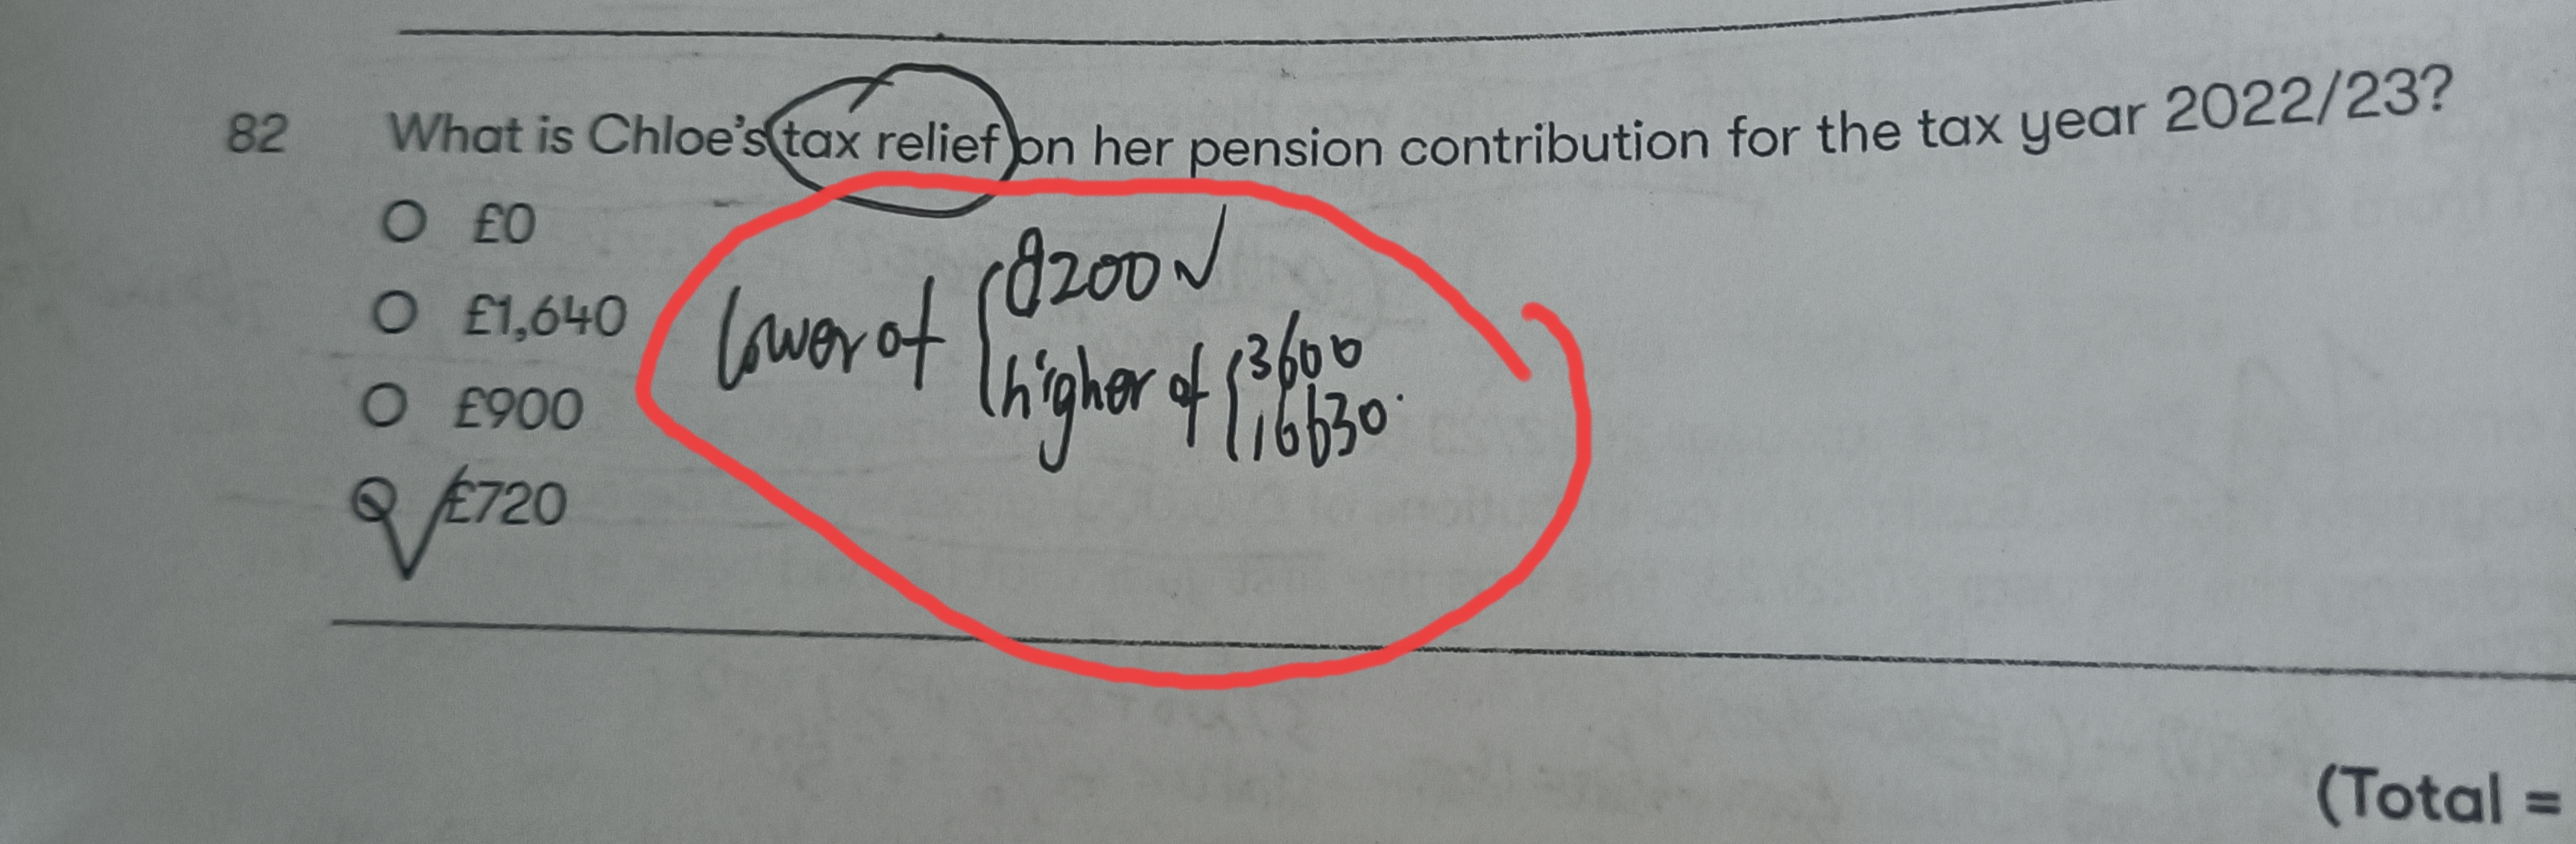 82 What is Chloe's tax relief on her pension contribution for the tax year 2022/23?
£0
£1,640
£900
£720
lower of 8200
higher of 3600
16630
(Total =